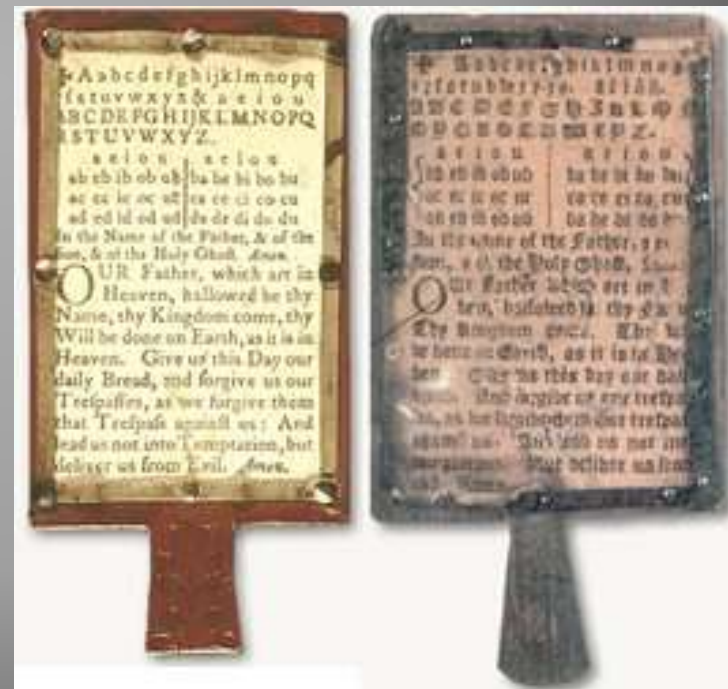 ✠Aabcdefghijklmnopq
rſstuvwxyz& a e i o u
ABCDEFGHIJKLMNOPQ
RSTUVWXYZ.
a e i o u a e i o u
ab eb ib ob ub ba be bi bo bu
ac ec ic oc uc ca ce ci co cu
ad ed id od ud da de di do du
In the Name of the Father, & of the
Son, & of the Holy Ghoſt. Amen.
OUR Father, which art in
Heaven, hallowed be thy
Name, thy Kingdom come, thy
Will be done on Earth, as it is in
Heaven. Give us this Day our
daily Bread, and forgive us our
Treſpaſſes, as we forgive them
that Treſpaſs againſt us: And
lead us not into Temptation, but
deliver us from Evil. Amen.
a e i o u a e i o u
ab eb ib ob ub ba be bi bo bu
ac ec ic oc uc ca ce ci co cu
ad ed id od ud da de di do du
In the Name of the Father,
of the Holy Ghoſt,
Our Father which art in
hallowed be thy
Thy Kingdom come. Thy
be done on Earth, as it is in
Give us this day our
And forgive us our treſpaſ
as we forgive them that treſpaſ
againſt us. And lead us not
But deliver us from